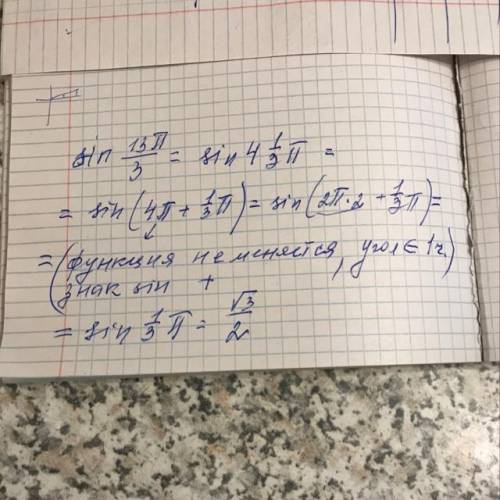 sin 13π/3 = sin 4 1/3 π =
= sin(4π + 1/3 π) = sin(2π·2 + 1/3 π) =
= (функция не меняется, угол ∈ 1ч.
знак sin +)
= sin 1/3 π = √3/2